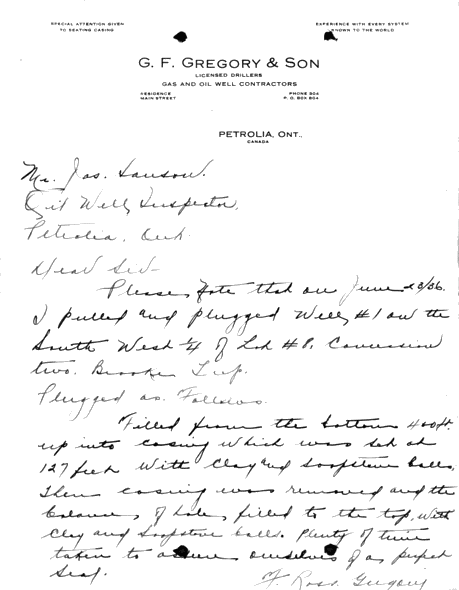 SPECIAL ATTENTION GIVEN
TO SEATING CASING
EXPERIENCE WITH EVERY SYSTEM
KNOWN TO THE WORLD
G. F. GREGORY & SON
LICENSED DRILLERS
GAS AND OIL WELL CONTRACTORS
RESIDENCE
MAIN STREET
PHONE 304
P. O. BOX 504
PETROLIA, ONT.,
CANADA
Mr. Jas. Lawson.
Oil Well Inspector,
Petrolia, Ont.
Dear Sir-
Please Note that on June /36.
I pulled and plugged Well #1 on the
South West 1/4 of Lot #8, Concession
two. Brooke Twp.
Plugged as. Follows.
Filled from the bottom 400ft.
up into casing which was set at
127 feet With Clay and soapstone balls.
Then casing was removed and the
balance of hole, filled to the top, with
Clay and Soapstone balls. Plenty of time
taken to assure ourselves of a perfect
Seal.
F. Ross. Gregory